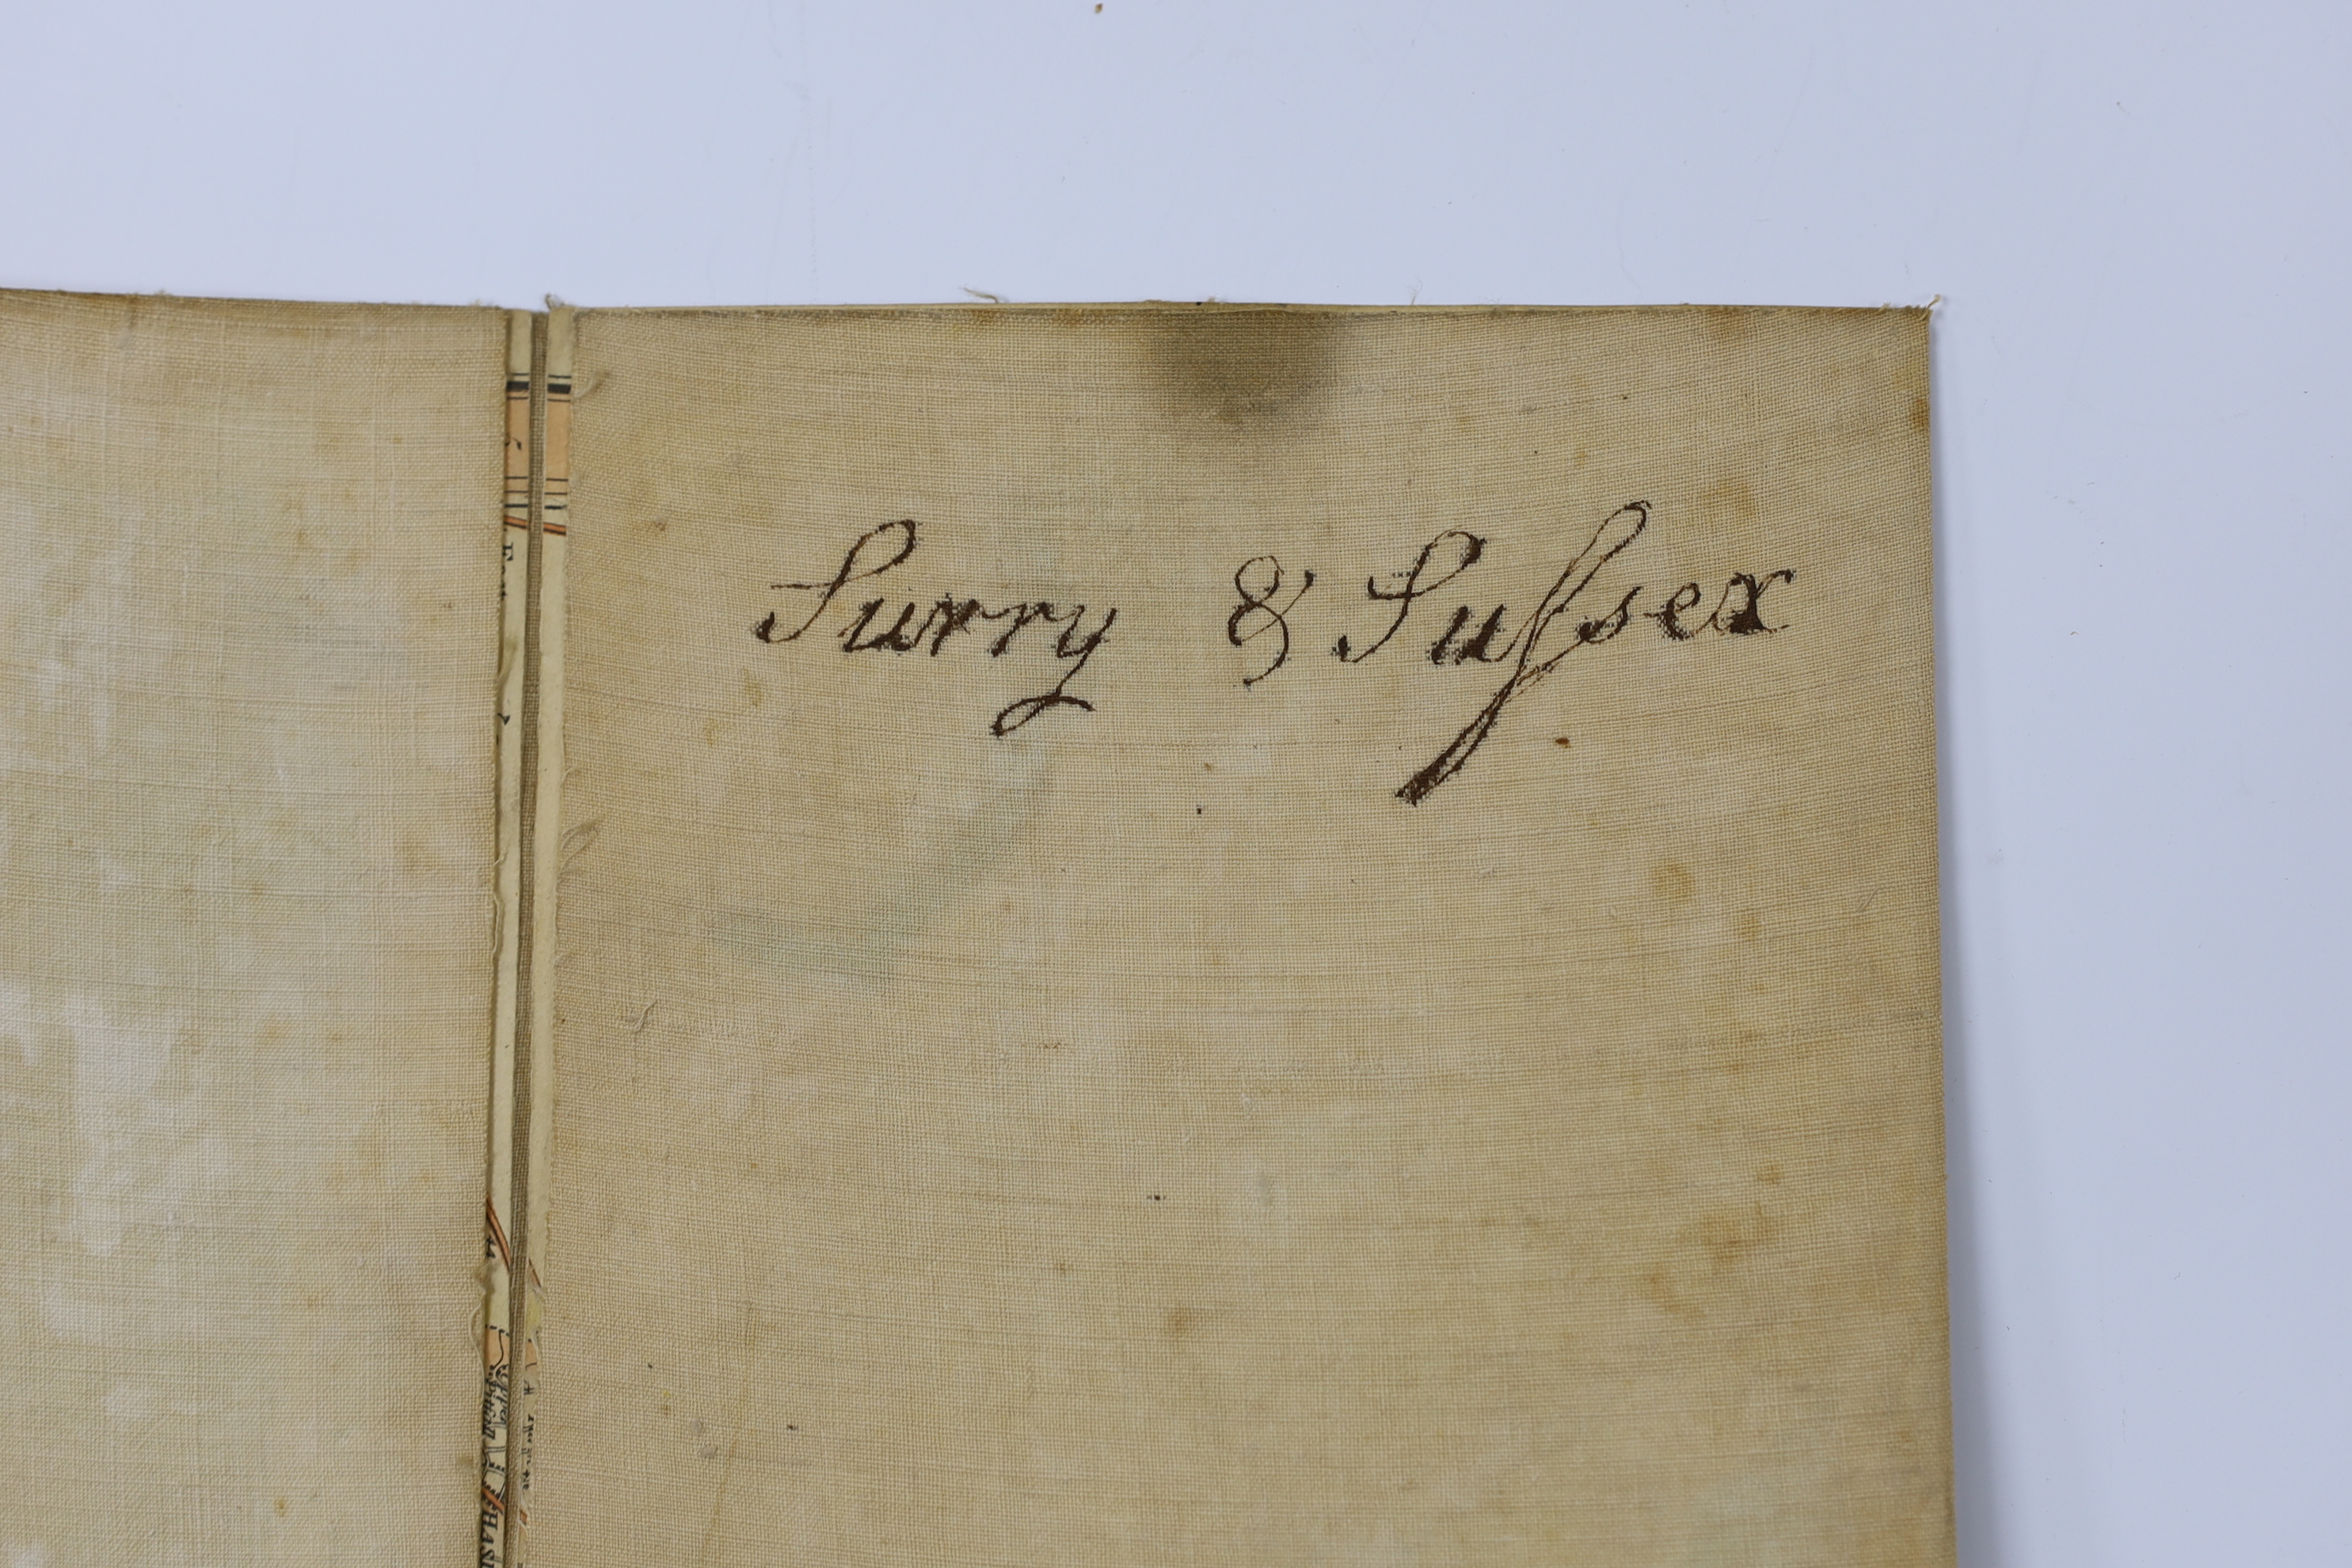 Surry & Suſsex